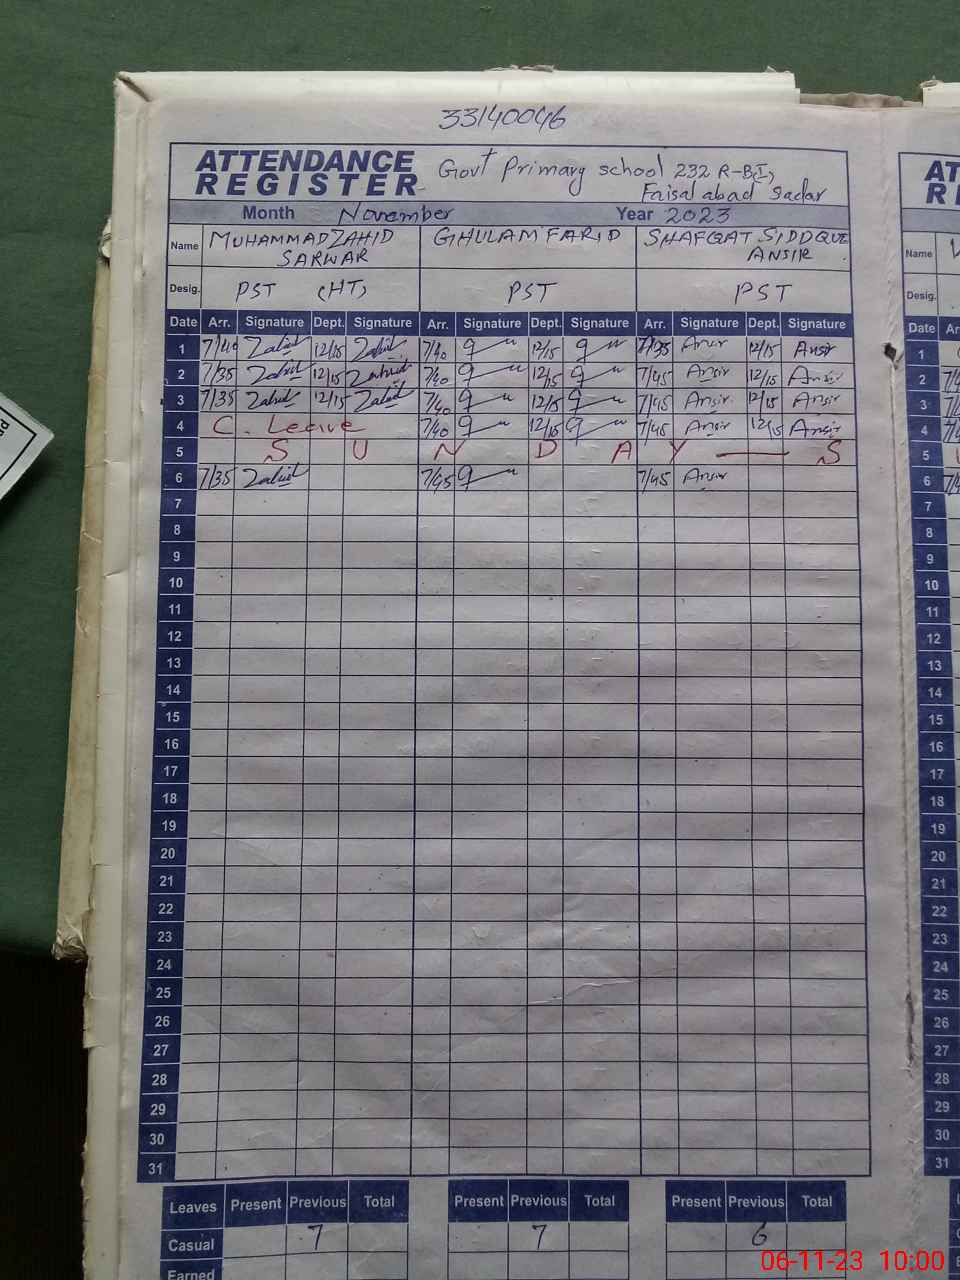 33140046
ATTENDANCE REGISTER
Govt Primary school 232 R-B(I),
Faisalabad Sadar
Month November Year 2023
Name MUHAMMAD ZAHID SARWAR GHULAM FARID SHAFQAT SIDDQUE ANSIR
Desig. PST (HT) PST PST
Date Arr. Signature Dept. Signature Arr. Signature Dept. Signature Arr. Signature Dept. Signature
1 7/40 Zahid 12/15 Zahid 7/40 12/15 7/35 Ansir 12/15 Ansir
2 7/35 Zahid 12/15 Zahid 7/40 12/15 7/45 Ansir 12/15 Ansir
3 7/35 Zahid 12/15 Zahid 7/40 12/15 7/45 Ansir 12/15 Ansir
4 C. Leave 7/40 12/15 7/45 Ansir 12/15 Ansir
5 S U N D A Y S
6 7/35 Zahid 7/45 7/45 Ansir
7
8
9
10
11
12
13
14
15
16
17
18
19
20
21
22
23
24
25
26
27
28
29
30
31
Leaves Present Previous Total Present Previous Total Present Previous Total
Casual 7 7 6
Earned
06-11-23 10:00
AT
R
Name
Desig.
Date Ar
1
2
3
4
5
6
7
8
9
10
11
12
13
14
15
16
17
18
19
20
21
22
23
24
25
26
27
28
29
30
31